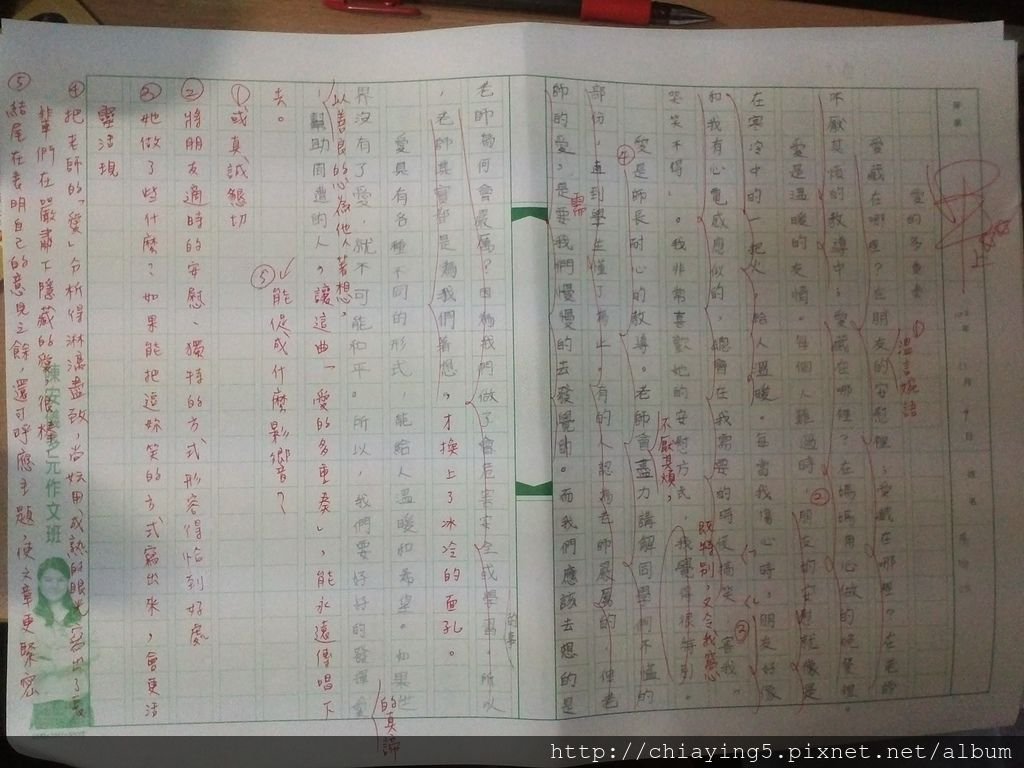 愛的多重奏
愛藏在哪裡？在朋友的安慰裡；愛藏在哪裡？在老師
不厭其煩的教導中；愛藏在哪裡？在媽媽用心做的晚餐裡。
愛是溫暖的友情。每個人難過時，朋友的安慰就像是
在寒冷中的一把火，給人溫暖。每當我傷心時，朋友好像
和我有心電感應似的，總會在我需要的時候搞笑，害我
哭笑不得。我非常喜歡她的安慰方式，我覺得很特別。
愛是師長耐心的教導。老師會盡力講解同學們不懂的
部份，直到學生懂了為止。有的人認為老師嚴厲的，但老
師的愛，是要我們慢慢的去發覺的。而我們應該去想的是
老師為何會嚴厲？因為我們做了會危害安全或學習，所以
，老師其實都是為我們著想，才換上了冰冷的面孔。
愛具有各種不同的形式，能給人溫暖和希望。如果世
界沒有了愛，就不可能和平。所以，我們要好好的發揮愛
，幫助周遭的人，讓這曲「愛的多重奏」，能永遠傳唱下
去。
溫言婉語
不厭其煩，
既特別，又令我窩
需
的事
的真諦
以善良的心為他人著想，
⑤能促成什麼影響？
①或真誠懇切
②將朋友適時的安慰、獨特的方式形容得恰到好處
③她做了些什麼？如果能把逗妳笑的方式寫出來，會更活
靈活現
④把老師的「愛」分析得淋漓盡致，尚妘用成熟的眼光寫出了長
輩們在嚴肅下隱藏的愛，很棒
⑤結尾在表明自己的意見之餘，還可呼應主題，使文章更緊密
陳安儀多元作文班
http://chiaying5.pixnet.net/album